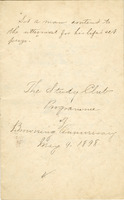 "Let a man contend to
the uttermost for his life's set
prize.
The Study Club
Programme
of
Browning Anniversary
May 9, 1898